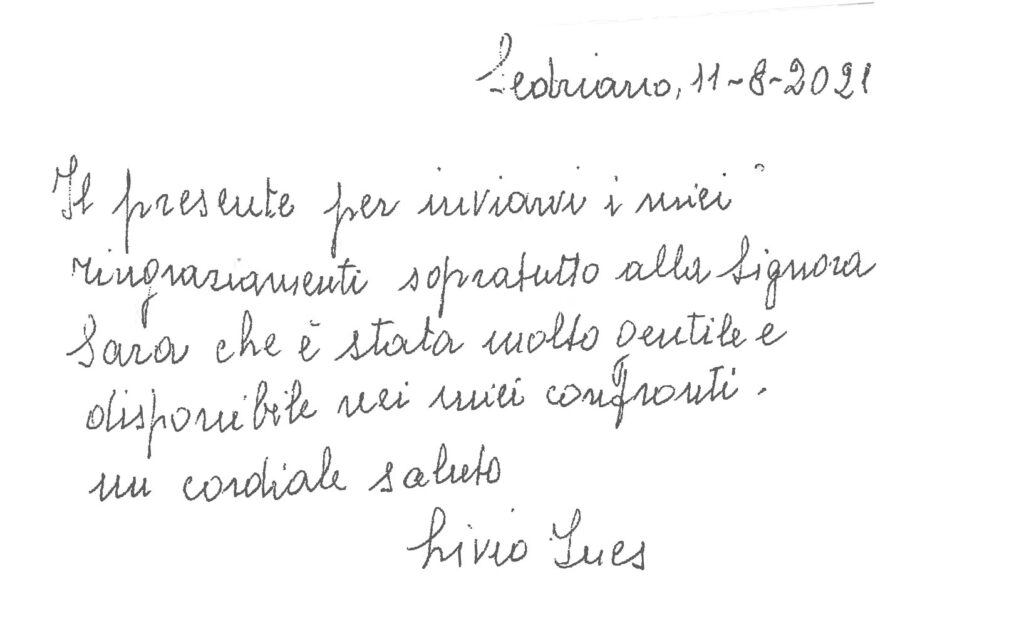 Sedriano, 11-8-2021
Il presente per inviarvi i miei
ringraziamenti sopratutto alla Signora
Sara che è stata molto gentile e
disponibile nei miei confronti.
un cordiale saluto
Livio